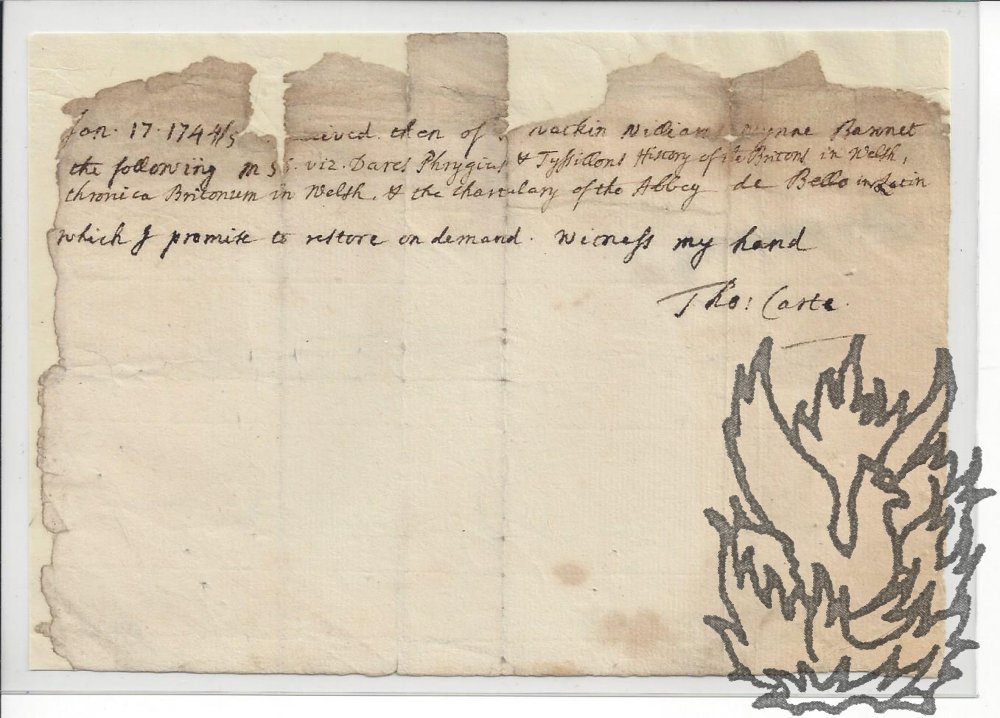 Jan. 17. 1744/5 ceived then of Watkin William Wynne Barnet
the following mss. viz. Dares Phrygius & Tyssilions History of the Britons in Welsh,
Chronica Britonum in Welsh, & the Chartulary of the Abbey de Bello in Latin
which I promise to restore on demand. Witness my hand
Tho: Carte.